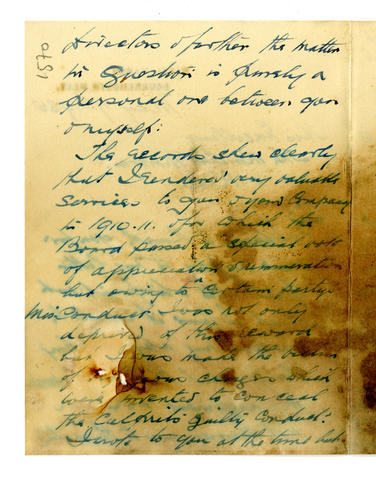 1570
Directors & further the matter
in question is purely a
personal one between you
& myself:
The records shew clearly
that I rendered very valuable
services to you & your Company
in 1910.11. for which the
Board passed a special vote
of appreciation & remuneration
but owing to a certain party's
Misconduct I was not only
deprived of this reward
but I was made the victim
of charges which
were invented to conceal
the Culprit's guilty conduct.
I wrote to you at the time but